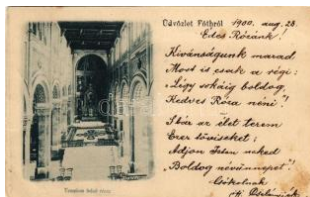 Üdvözlet Fóthról 1900. aug. 28.
Édes Rózánk!
Kivánságunk marad
Most is csak a régi:
"Légy sokáig boldog,
Kedves Róza néni"!
Ibár az élet terem
Ezer töviseket;
Adjon Isten neked
"Boldog névünnepet"!
Csókolnak
Templom belső része.